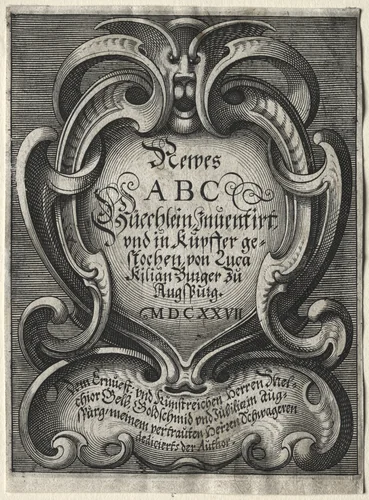 Newes
ABC
Büechlein Inuentirt
vnd in Kupffer ge-
stochen, von Luca
Kilian Burger zu
Augspurg.
MDCXXVII
Dem Ernuest: vnd Kunstreichen Herren Mel-
chior Gelb Goldschmid vnd Jubilir in Aug-
spurg, meinem vertrauten Herren Schwageren
dedicierts der Author.